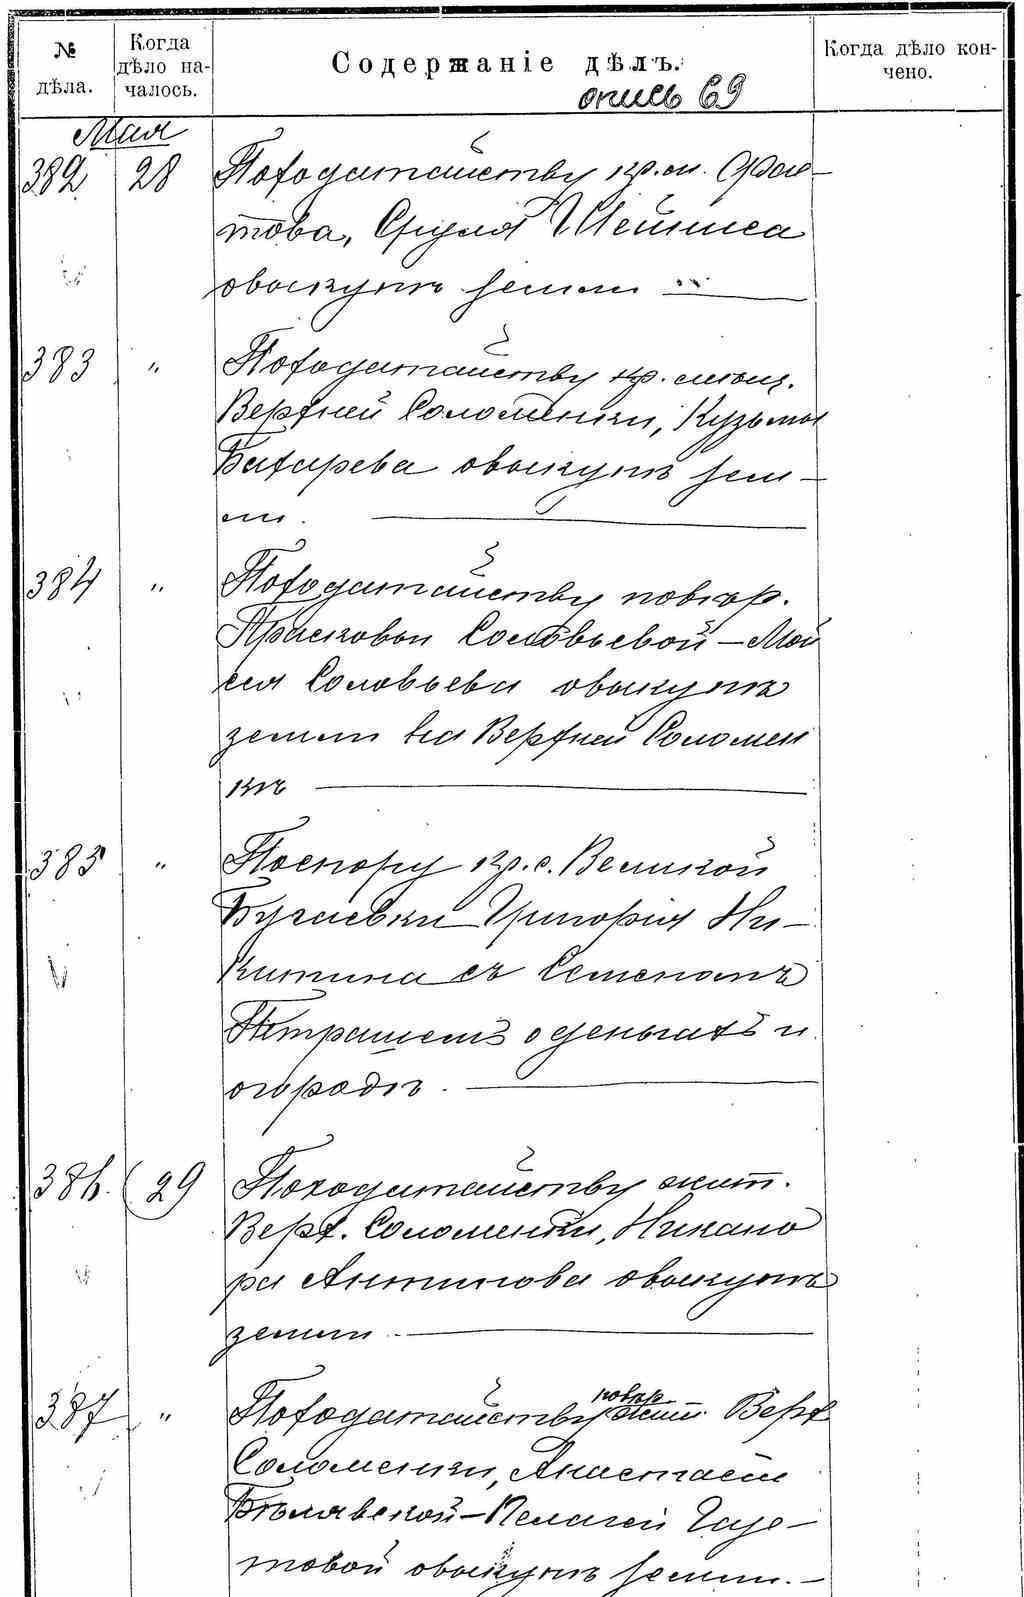 № дѣла.
Когда дѣло на-
чалось.
Содержаніе дѣлъ.
Когда дѣло кон-
чено.
опись 69
Мая
382 28 По ходатайству кр. м. Фас-
това, Сруля Шейниса
о выкупѣ земли
383 " По ходатайству кр. мѣщ.
Верхней Соломенки, Кузьмы
Бахарева о выкупѣ зем-
ли.
384 " По ходатайству повѣр.
Прасковьи Соловьевой – Мой
сея Соловьева о выкупѣ
земли на Верхней Соломен
кѣ
385 " По спору кр. с. Великой
Бугаевки Григорія Ни-
китина съ Семеномъ
Петрашемъ о деньгахъ и
огородѣ.
386. 29 По ходатайству жит.
Верх. Соломенки, Никано
ра Антипова о выкупѣ
земли
387 " По ходатайству повѣр жит. Верх
Соломенки, Анастасіи
Бѣлявской – Пелагеи
товой о выкупѣ земли. –